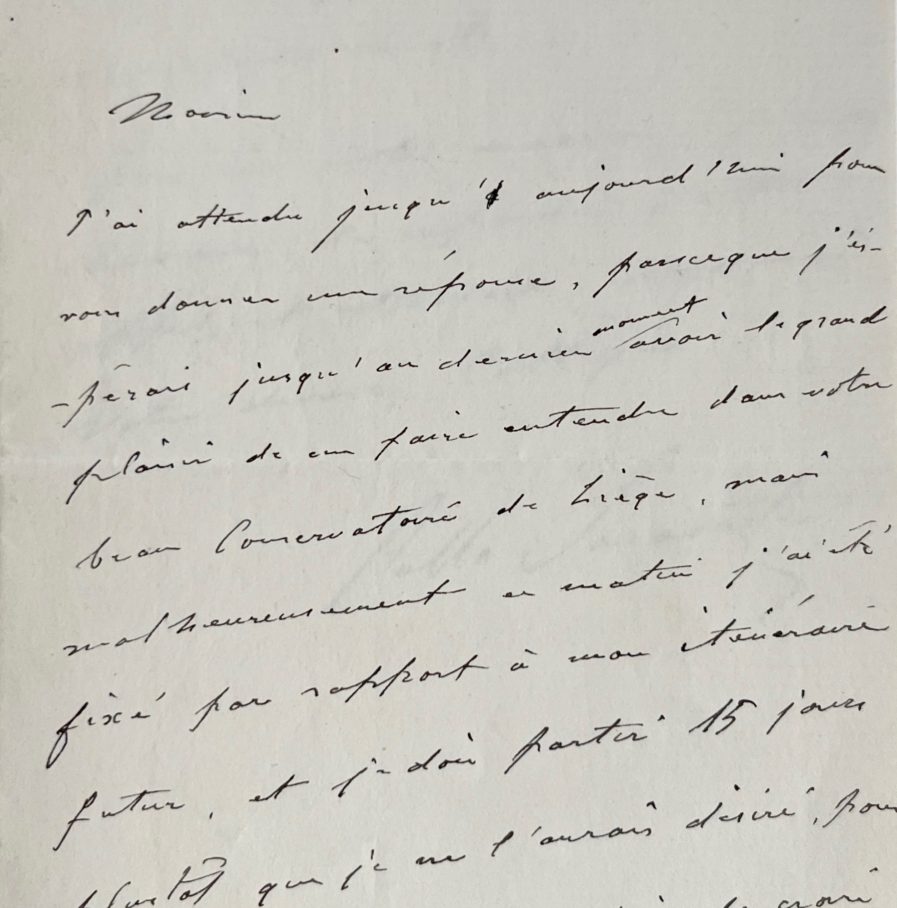 Monsieur
J'ai attendu jusqu'à aujourd'hui pour
vous donner une réponse, parceque j'es-
-pérais jusqu'au dernier moment avoir le grand
plaisir de me faire entendre dans votre
beau Conservatoire de Liège, mais
malheureusement ce matin j'ai été
fixé par rapport à mon itinéraire
futur, et je dois partir 15 jours
plustôt que je ne l'aurais désiré, pour